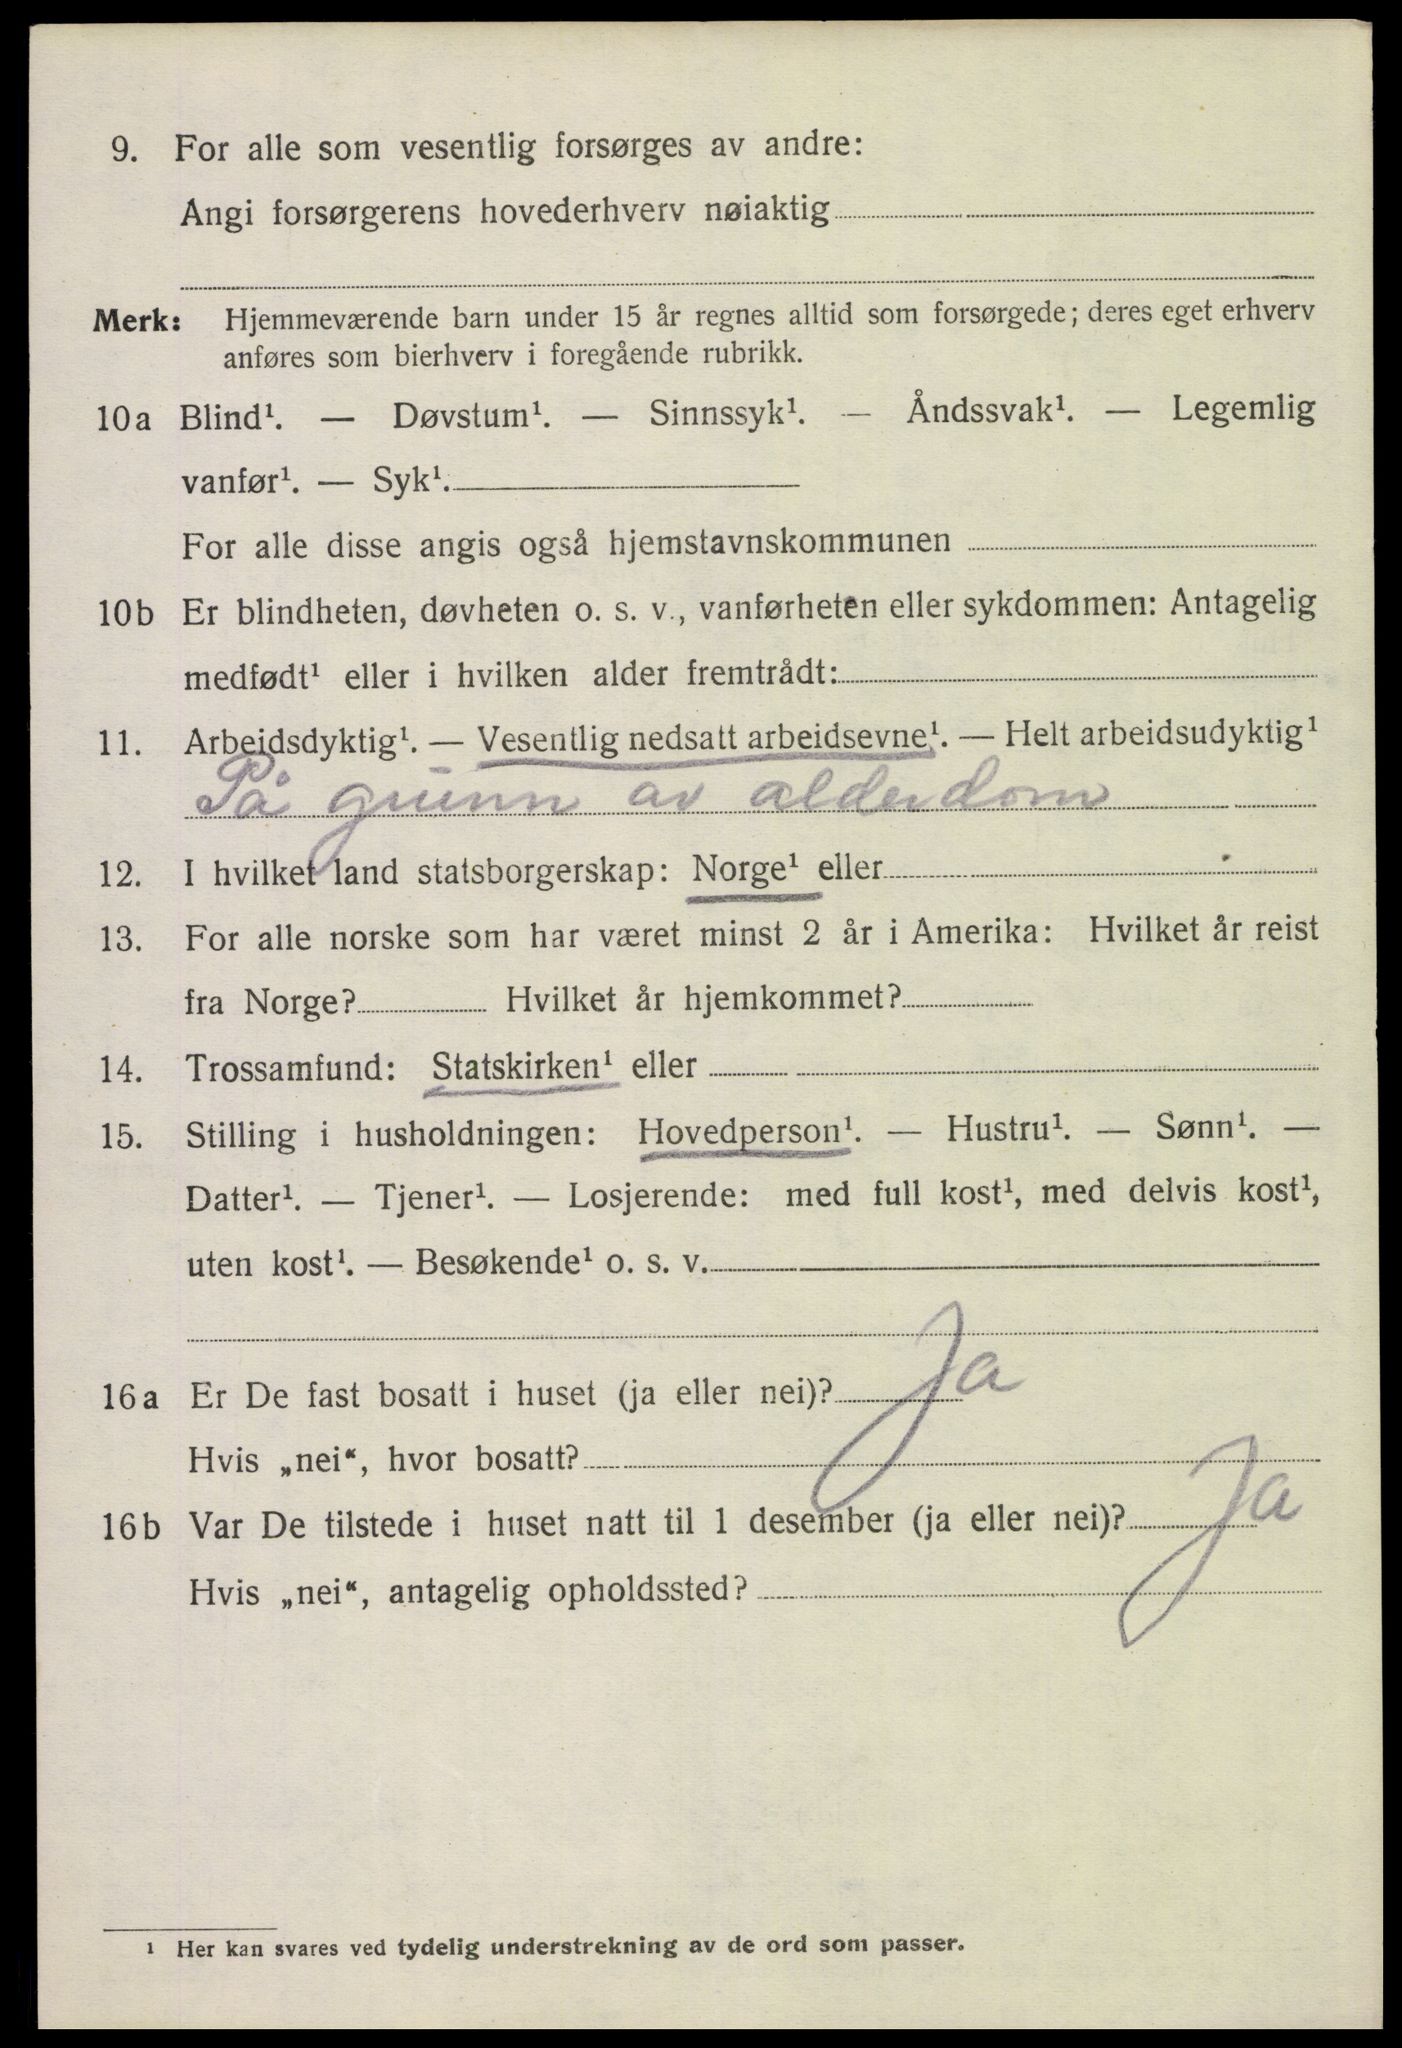 9. For alle som vesentlig forsørges av andre:
Angi forsørgerens hovederhverv nøiaktig
Merk: Hjemmeværende barn under 15 år regnes alltid som forsørgede; deres eget erhverv
anføres som bierhverv i foregående rubrikk.
10a Blind¹. — Døvstum¹. — Sinnssyk¹. — Åndssvak¹. — Legemlig
vanfør¹. — Syk¹.
For alle disse angis også hjemstavnskommunen
10b Er blindheten, døvheten o. s. v., vanførheten eller sykdommen: Antagelig
medfødt¹ eller i hvilken alder fremtrådt:
11. Arbeidsdyktig¹. — Vesentlig nedsatt arbeidsevne¹. — Helt arbeidsudyktig¹
På grunn av alderdom
12. I hvilket land statsborgerskap: Norge¹ eller
13. For alle norske som har været minst 2 år i Amerika: Hvilket år reist
fra Norge? Hvilket år hjemkommet?
14. Trossamfund: Statskirken¹ eller
15. Stilling i husholdningen: Hovedperson¹. — Hustru¹. — Sønn¹. —
Datter¹. — Tjener¹. — Losjerende: med full kost¹, med delvis kost¹,
uten kost¹. — Besøkende¹ o. s. v.
16a Er De fast bosatt i huset (ja eller nei)? Ja
Hvis „nei“, hvor bosatt?
16b Var De tilstede i huset natt til 1 desember (ja eller nei)? Ja
Hvis „nei“, antagelig opholdssted?
¹ Her kan svares ved tydelig understrekning av de ord som passer.